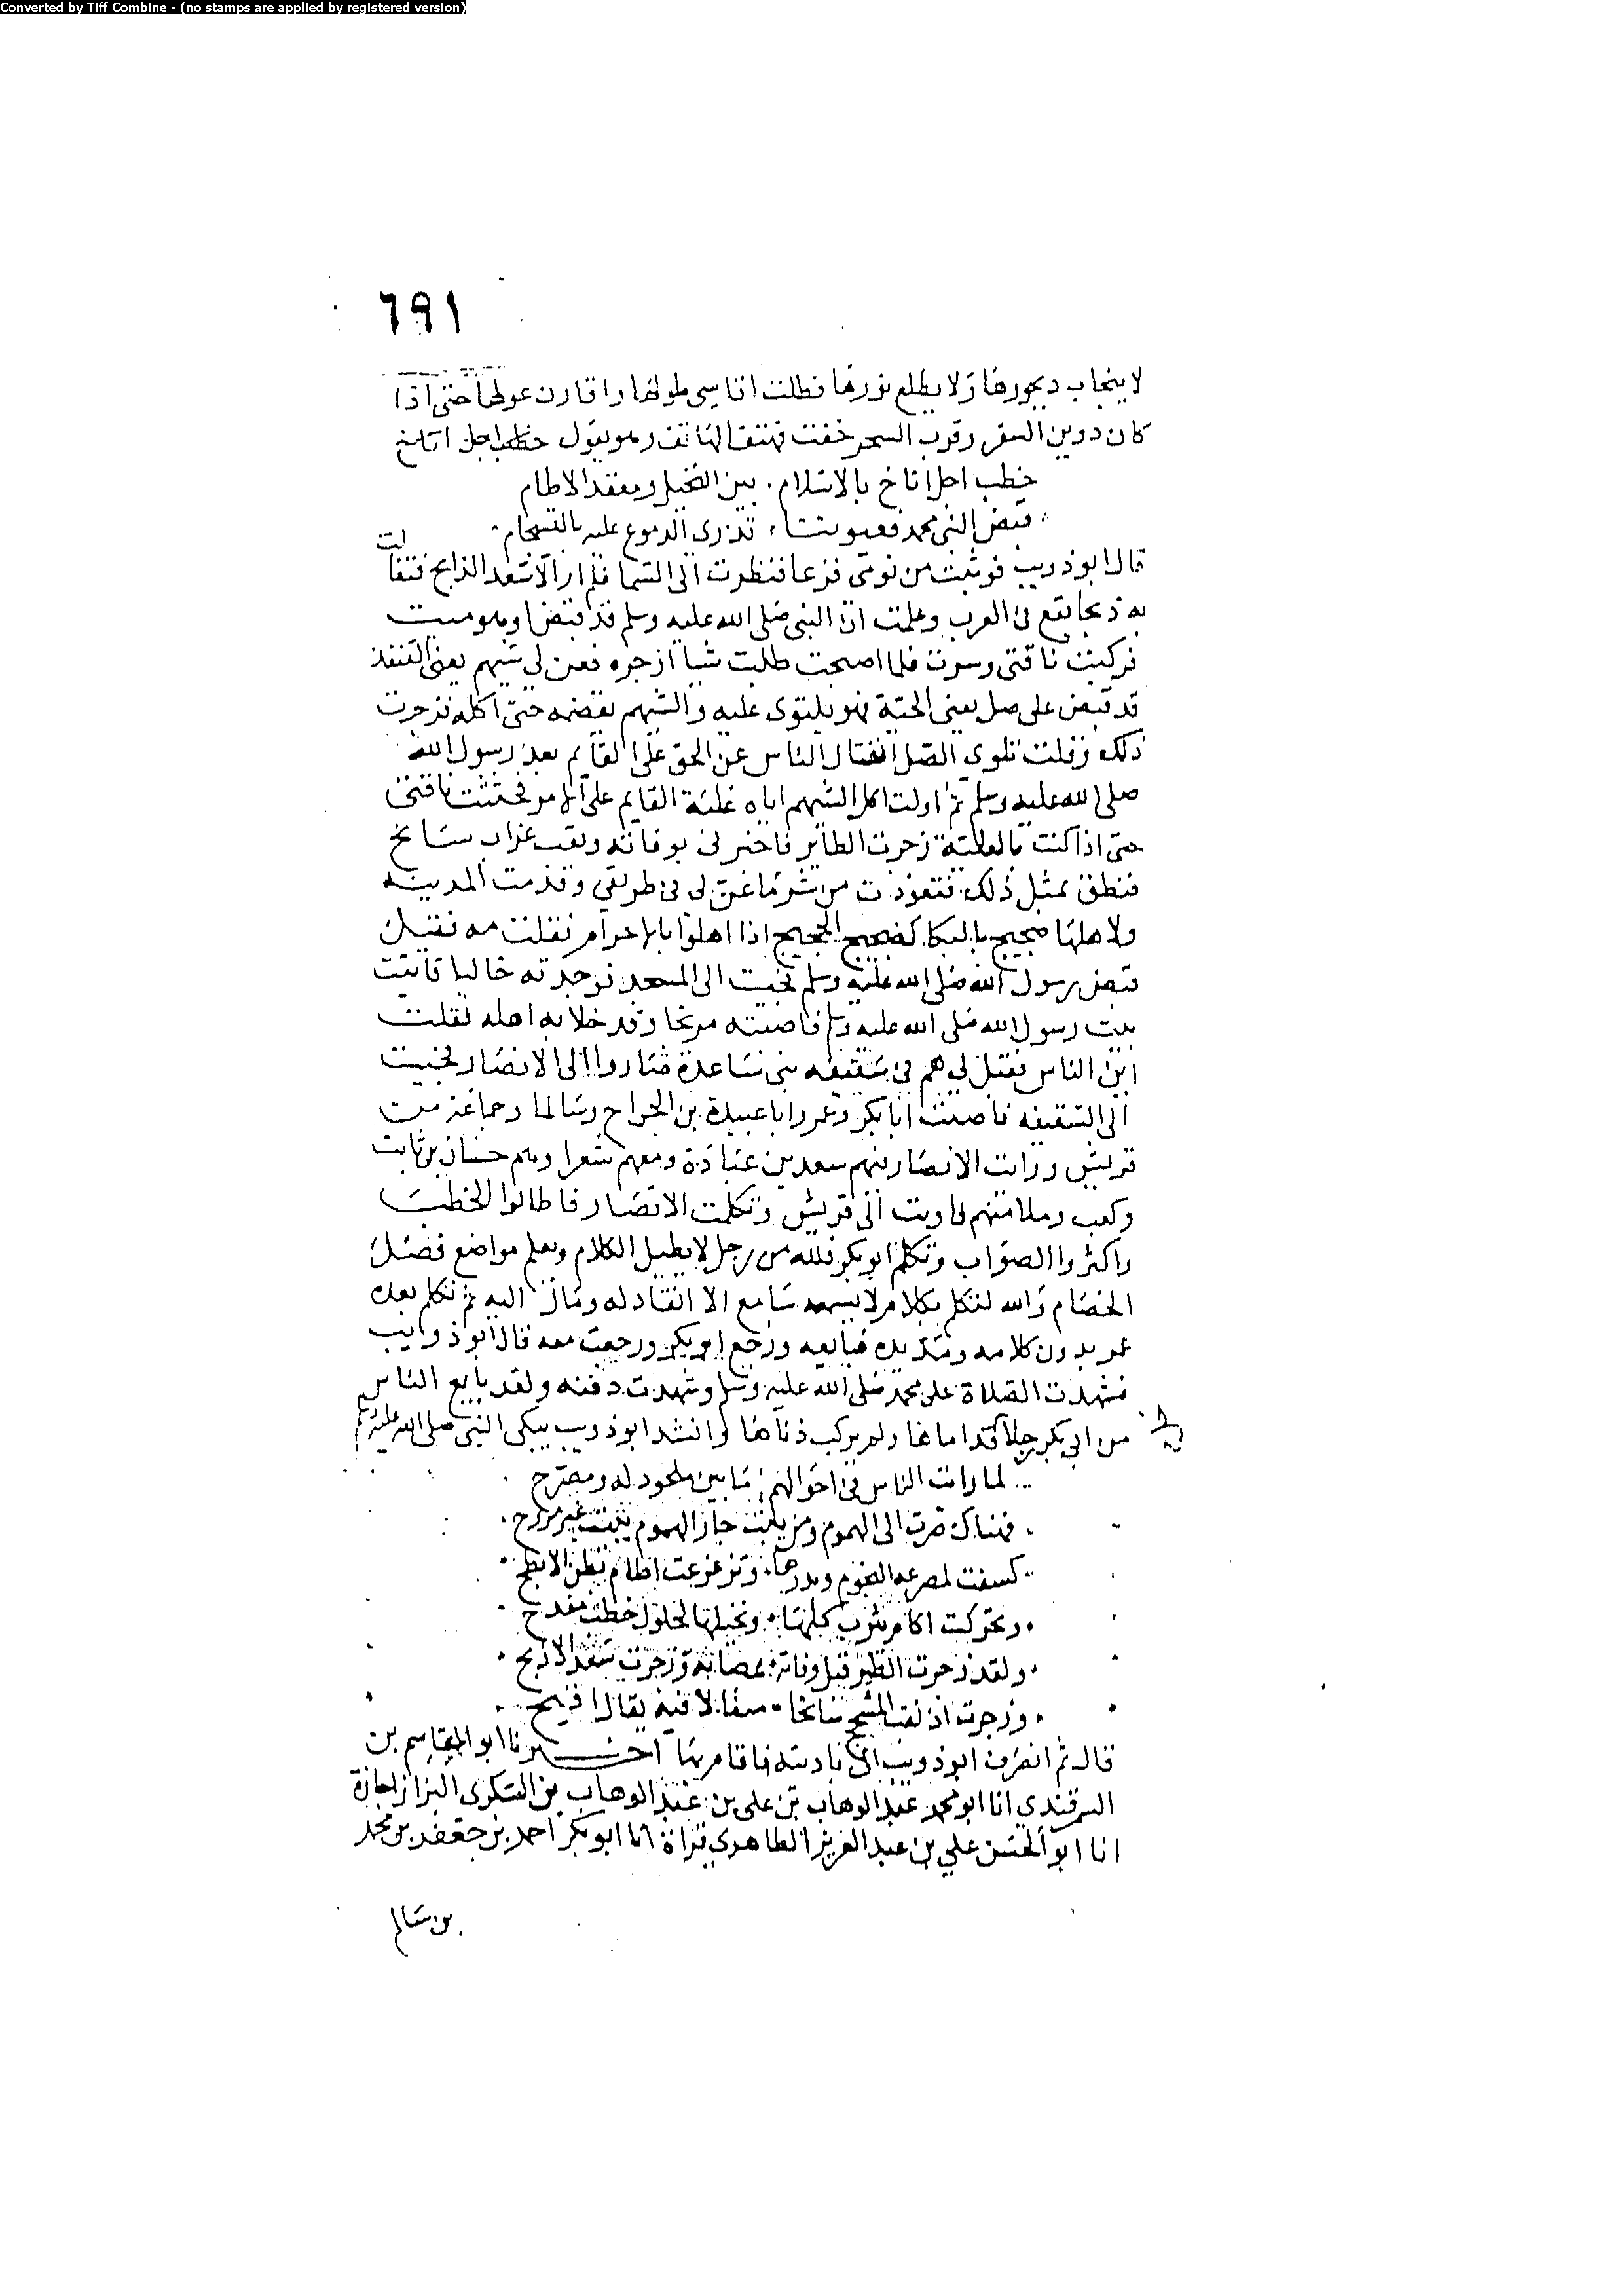 Converted by Tiff Combine - (no stamps are applied by registered version)
٦٩١
لا ينجاب ديجورها ولا يطلع نورها فظلت اقاسي طولها واقارن غولها حتى اذا
كان دوين السفر وقرب السحر خفت فهتف الهاتف وهو يقول
خطب اجل اناخ بالاسلام . بين النخيل ومعقد الاطام
قبض النبي محمد فعيوننا . تذري الدموع عليه بالتسجام
قال ابو ذويب فوثبت من نومي فزعا فنظرت الى السما فلم ار الا سعد الذابح فتفالت
به ذبحا يقع في العرب وعلمت ان النبي صلى الله عليه وسلم قد قبض او هو ميت
فركبت ناقتي وسرت فلما اصبحت طلبت شيا ازجره فعن لي شيهم يعني القنفذ
قد قبض على صل يعني الحية فهو يلتوي عليه والشيهم يقضمه حتى اكله فزجرت
ذلك وقلت تلوي الصل انفتال الناس عن الحق على القايم بعد رسول الله
صلى الله عليه وسلم ثم اولت اكل الشيهم اياه غلبة القايم على الامر فحثثت ناقتي
حتى اذا كنت بالعلية زجرت الطاير فاخبرني بوفاته ونعب غراب سانح
فنطق بمثل ذلك فتعوذت من شر ما عن لي في طريقي وقدمت المدينه
ولاهلها ضجيج بالبكا كضجيج الحجيج اذا اهلوا بالاحرام فقلت مه فقيل
قبض رسول الله صلى الله عليه وسلم فجيت الى المسجد فوجدته خاليا فاتيت
بيت رسول الله صلى الله عليه وسلم فاصبته مرتجا وقد خلا به اهله فقلت
اين الناس فقيل لي هم في سقيفه بني ساعدة صاروا الى الانصار فجيت
الى السقيفه فاصبت ابا بكر وعمر وابا عبيدة بن الجراح وسالما وجماعة من
قريش ورايت الانصار فيهم سعد بن عبادة ومعهم شعراوهم حسان بن ثابت
وكعب وملا منهم فاويت الى قريش وتكلمت الانصار فاطالوا الخطب
واكثروا الصواب وتكلم ابو بكر فلله من رجل لا يطيل الكلام ويعلم مواضع فصل
الخصام والله لتكلم بكلام لا يسمعه سامع الا انقاد له ومال اليه ثم تكلم بعده
عمر بدون كلامه ومد يده فبايعه ورجع ابو بكر ورجعت معه قال ابو ذوايب
فشهدت الصلاة على محمد صلى الله عليه وسلم وشهدت دفنه ولقد بايع الناس
من ابي بكر رجلا قداماها ولم يركب ذناها وانشد ابو ذويب يبكي النبي صلى الله عليه وسلم
لما رايت الناس في احوالهم . ما بين ملحود له ومضرح
فهناك صرت الى الهموم ومن يبت جار الهموم يبيت غير مروح
كسفت لمصرعه النجوم وبدرها . وتزعزعت اطام بطن الابطح
وتحركت اكام يثرب كلها . ونخيلها لحلول خطب مفدح
ولقد زجرت الطير قبل وفاته . بمصابه وزجرت سعد الاذبح
وزجرت اذ نعب المشحج سانحا . متفالا فيه بفال اقبح
قال ثم انصرف ابو ذويب الى باديته فاقام بها اخبرنا ابو القاسم بن
السمرقندي انا ابو محمد عبد الوهاب بن علي بن عبد الوهاب بن السكري البزاز اجازة
انا ابو الحسن علي بن عبد العزيز الطاهري قراة انا ابو بكر احمد بن جعفر بن محمد
بن سالم